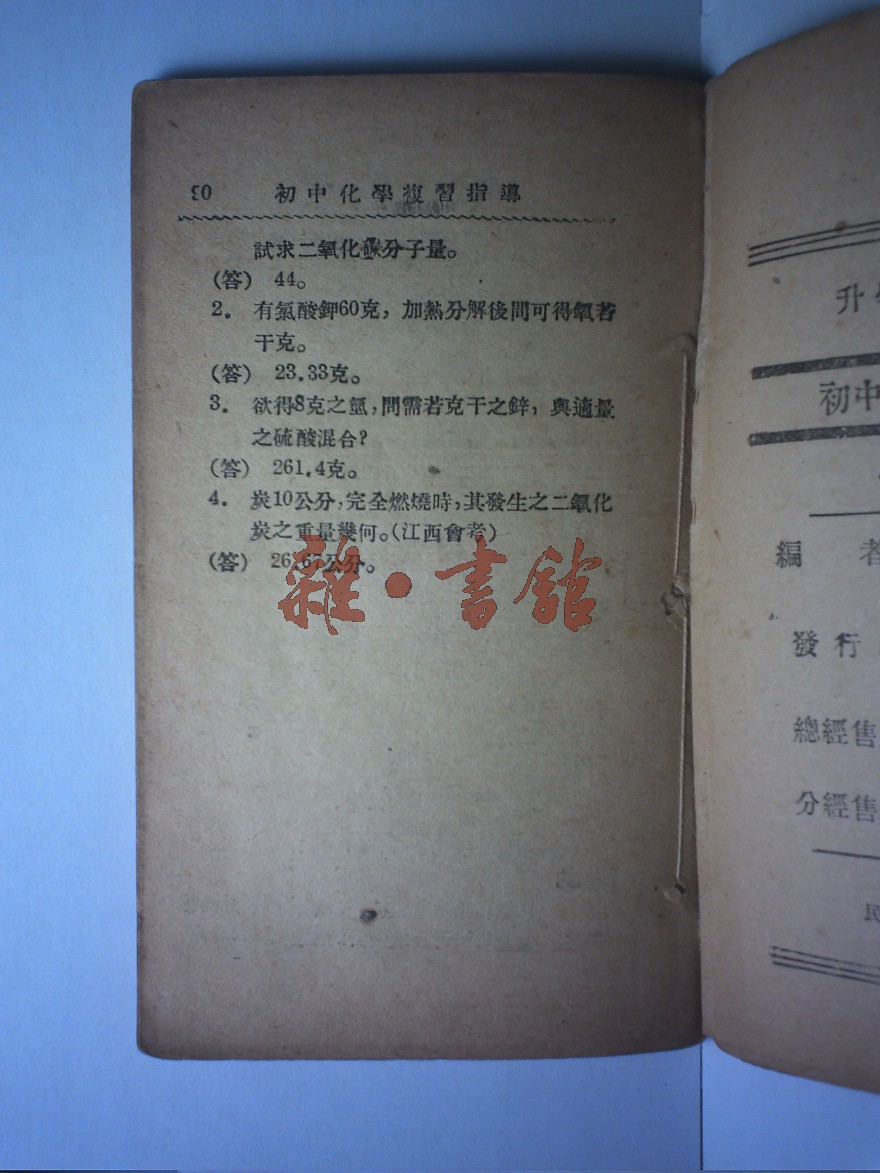 90 初中化學複習指導
試求二氧化碳分子量。
(答) 44。
2. 有氯酸鉀60克，加熱分解後問可得氧若
干克。
(答) 23.33克。
3. 欲得8克之氫，問需若克干之鋅，與適量
之硫酸混合？
(答) 261.4克。
4. 炭10公分，完全燃燒時，其發生之二氧化
炭之重量幾何。(江西會考)
(答) 26.67公分。
雜·書館
升
初中
編 者
發行
總經售
分經售
民